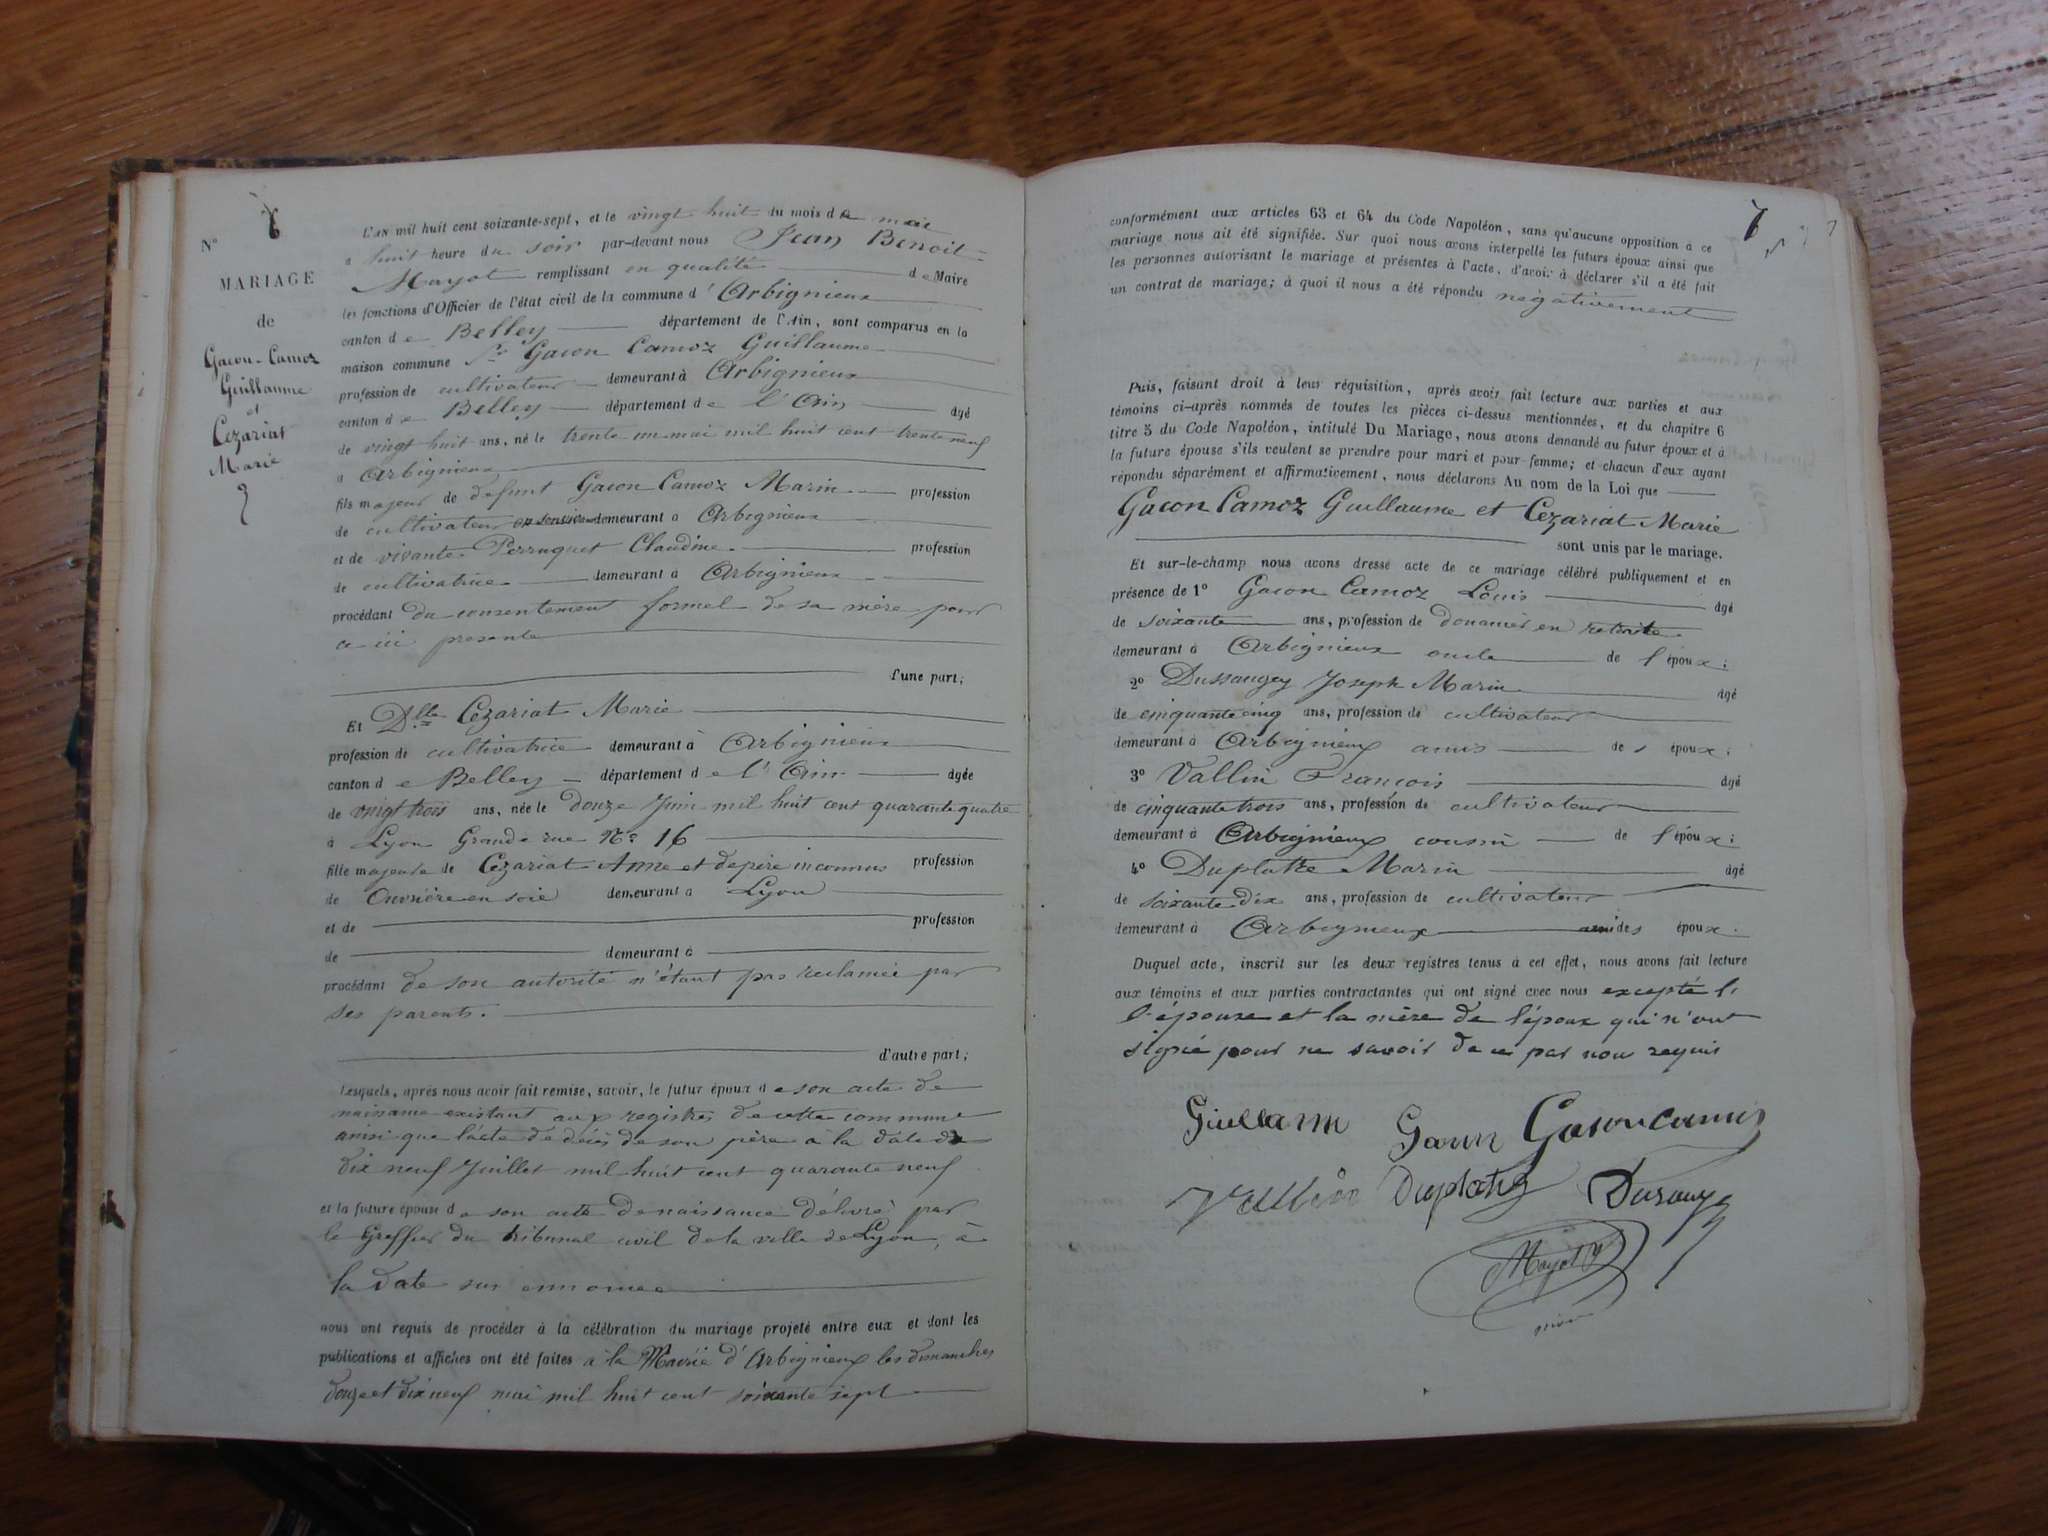 N° 6
MARIAGE
de
Gacon-Camoz
Guillaume
et
Cezariat
Marie
L'AN mil huit cent soixante-sept, et le vingt huit du mois de mai
a huit heure du soir par-devant nous Jean Benoit
Mayot remplissant en qualité de Maire
les fonctions d'Officier de l'état civil de la commune d'Arbignieux
canton de Belley département de l'Ain, sont comparus en la
maison commune Sr Gacon Camoz Guillaume
profession de cultivateur demeurant à Arbignieux
canton de Belley département de l'Ain âgé
de vingt huit ans, né le trente un mai mil huit cent trente neuf
a Arbignieux
fils majeur de défunt Gacon Camoz Marin profession
de cultivateur demeurant a Arbignieux
et de vivante Perruquet Claudine profession
de cultivatrice demeurant à Arbignieux
procédant du consentement formel de sa mère pour
ce ici presente
l'une part;
Et Dlle Cezariat Marie
profession de cultivatrice demeurant à Arbignieux
canton de Belley département de l'Ain âgée
de vingt trois ans, née le douze Juin mil huit cent quarante quatre
à Lyon Grande rue N° 16
fille majeure de Cezariat Anne et de père inconnus profession
de Ouvrière en soie demeurant a Lyon
et de profession
de demeurant à
procédant de son autorité n'étant pas réclamée par
ses parents.
d'autre part;
Lesquels, après nous avoir fait remise, savoir, le futur époux de son acte de
naissance existant aux registres de cette commune
ainsi que l'acte de décès de son père à la date du
dix neuf Juillet mil huit cent quarante neuf
et la future épouse de son acte de naissance délivré par
le Greffier du tribunal civil de la ville de Lyon, à
la date sus ennoncee
nous ont requis de procéder à la célébration du mariage projeté entre eux et dont les
publications et affiches ont été faites a la Mairie d'Arbignieux les dimanches
douze et dix neuf mai mil huit cent soixante sept
conformément aux articles 63 et 64 du Code Napoléon, sans qu'aucune opposition à ce
mariage nous ait été signifiée. Sur quoi nous avons interpellé les futurs époux ainsi que
les personnes autorisant le mariage et présentes à l'acte, d'avoir à déclarer s'il a été fait
un contrat de mariage; à quoi il nous a été répondu négativement
Puis, faisant droit à leur réquisition, après avoir fait lecture aux parties et aux
témoins ci-après nommés de toutes les pièces ci-dessus mentionnées, et du chapitre 6
titre 5 du Code Napoléon, intitulé Du Mariage, nous avons demandé au futur époux et à
la future épouse s'ils veulent se prendre pour mari et pour femme; et chacun d'eux ayant
répondu séparément et affirmativement, nous déclarons Au nom de la Loi que
Gacon Camoz Guillaume et Cezariat Marie
sont unis par le mariage.
Et sur-le-champ nous avons dressé acte de ce mariage célébré publiquement et en
présence de 1° Gacon Camoz Louis âgé
de soixante ans, profession de douanier en retraite
demeurant à Arbignieux oncle de l'époux;
2° Dussaugey Joseph Marin âgé
de cinquante cinq ans, profession de cultivateur
demeurant à Arbignieux amis des époux;
3° Vallin François âgé
de cinquante trois ans, profession de cultivateur
demeurant à Arbignieux cousin de l'époux;
4° Duplatre Marin âgé
de soixante dix ans, profession de cultivateur
demeurant à Arbignieux ami des époux.
Duquel acte, inscrit sur les deux registres tenus à cet effet, nous avons fait lecture
aux témoins et aux parties contractantes qui ont signé avec nous excepté
l'épouse et la mère de l'époux qui n'ont
signé pour ne savoir de ce par nous requis
Gacon Gaconcamoz
Vallin Duplatre
Mayot